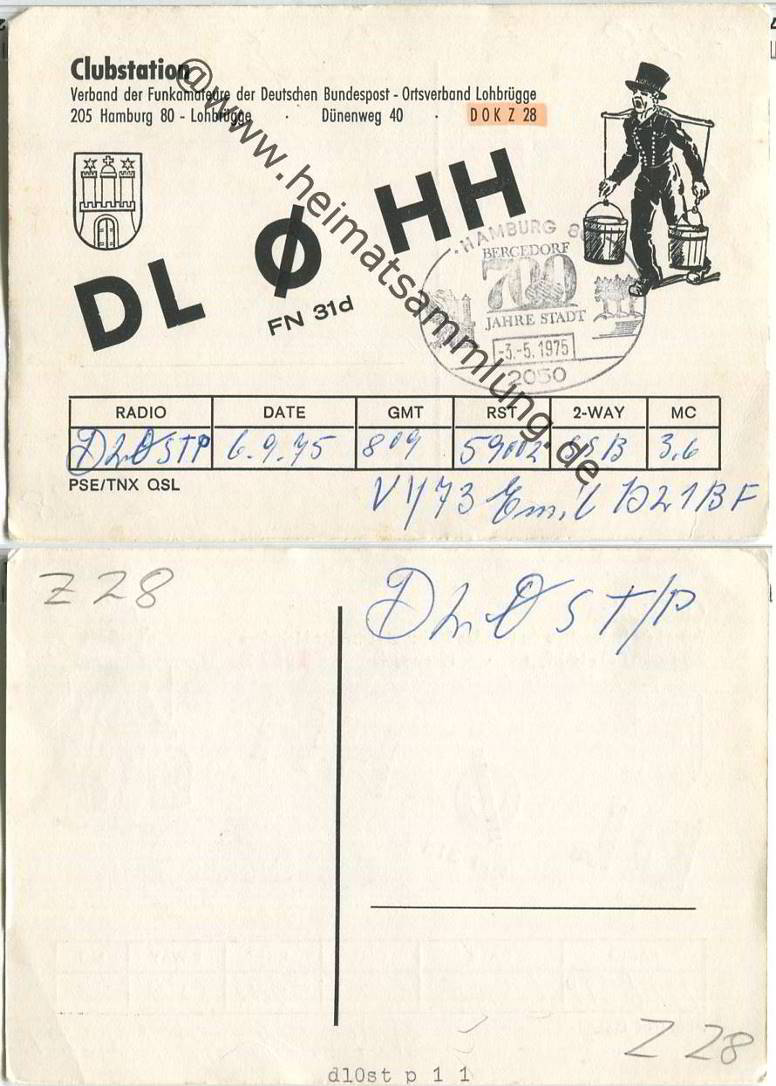 Clubstation
Verband der Funkamateure der Deutschen Bundespost - Ortsverband Lohbrügge
205 Hamburg 80 - Lohbrügge · Dünenweg 40 · DOK Z 28
DL Ø HH
FN 31d
HAMBURG 80
BERGEDORF
700
JAHRE STADT
-3.-5.1975
2050
@www.heimatsammlung.de
RADIO DATE GMT RST 2-WAY MC
DLØSTP 6.9.75 809 59002 SSB 3,6
PSE/TNX QSL
VY 73 Emil DL1BF
Z 28
DLØST/P
Z 28
dl0st p 1 1